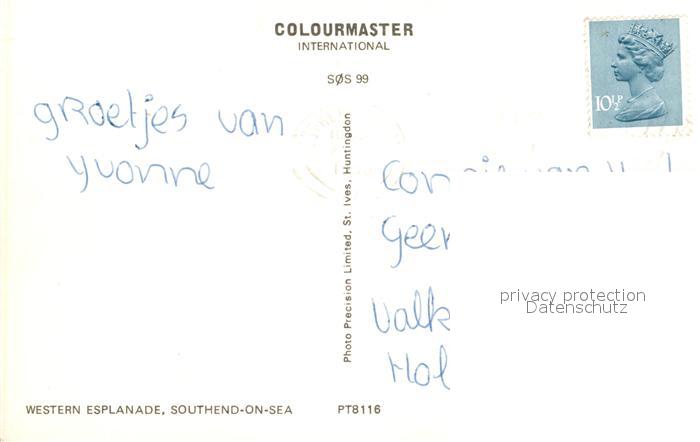 COLOURMASTER
INTERNATIONAL
SØS 99
10½P
groetjes van
yvonne
Photo Precision Limited, St. Ives, Huntingdon
privacy protection
Datenschutz
WESTERN ESPLANADE, SOUTHEND-ON-SEA
PT8116